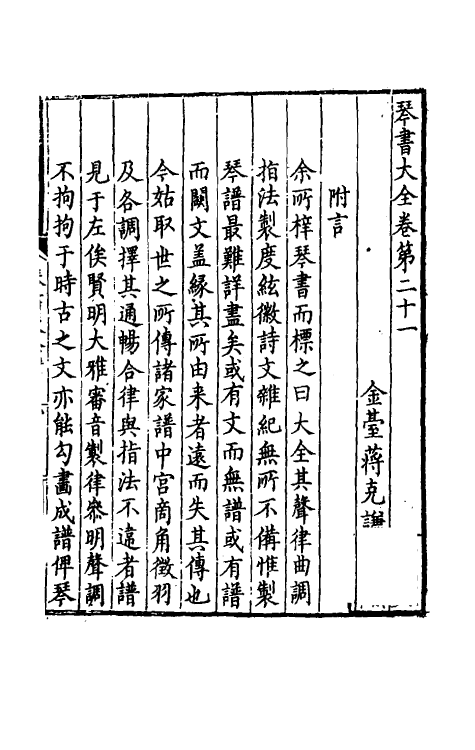 琴書大全卷第二十一
金臺蔣克謙
附言
余所梓琴書而標之曰大全其聲律曲調
指法製度絃徽詩文雜紀無所不備惟製
琴譜最難詳盡矣或有文而無譜或有譜
而闕文蓋緣其所由来者遠而失其傳也
今姑取世之所傳諸家譜中宮商角徵羽
及各調擇其通暢合律與指法不遠者譜
見于左俟賢明大雅審音製律叅明聲調
不拘拘于時古之文亦能勾畫成譜俾琴